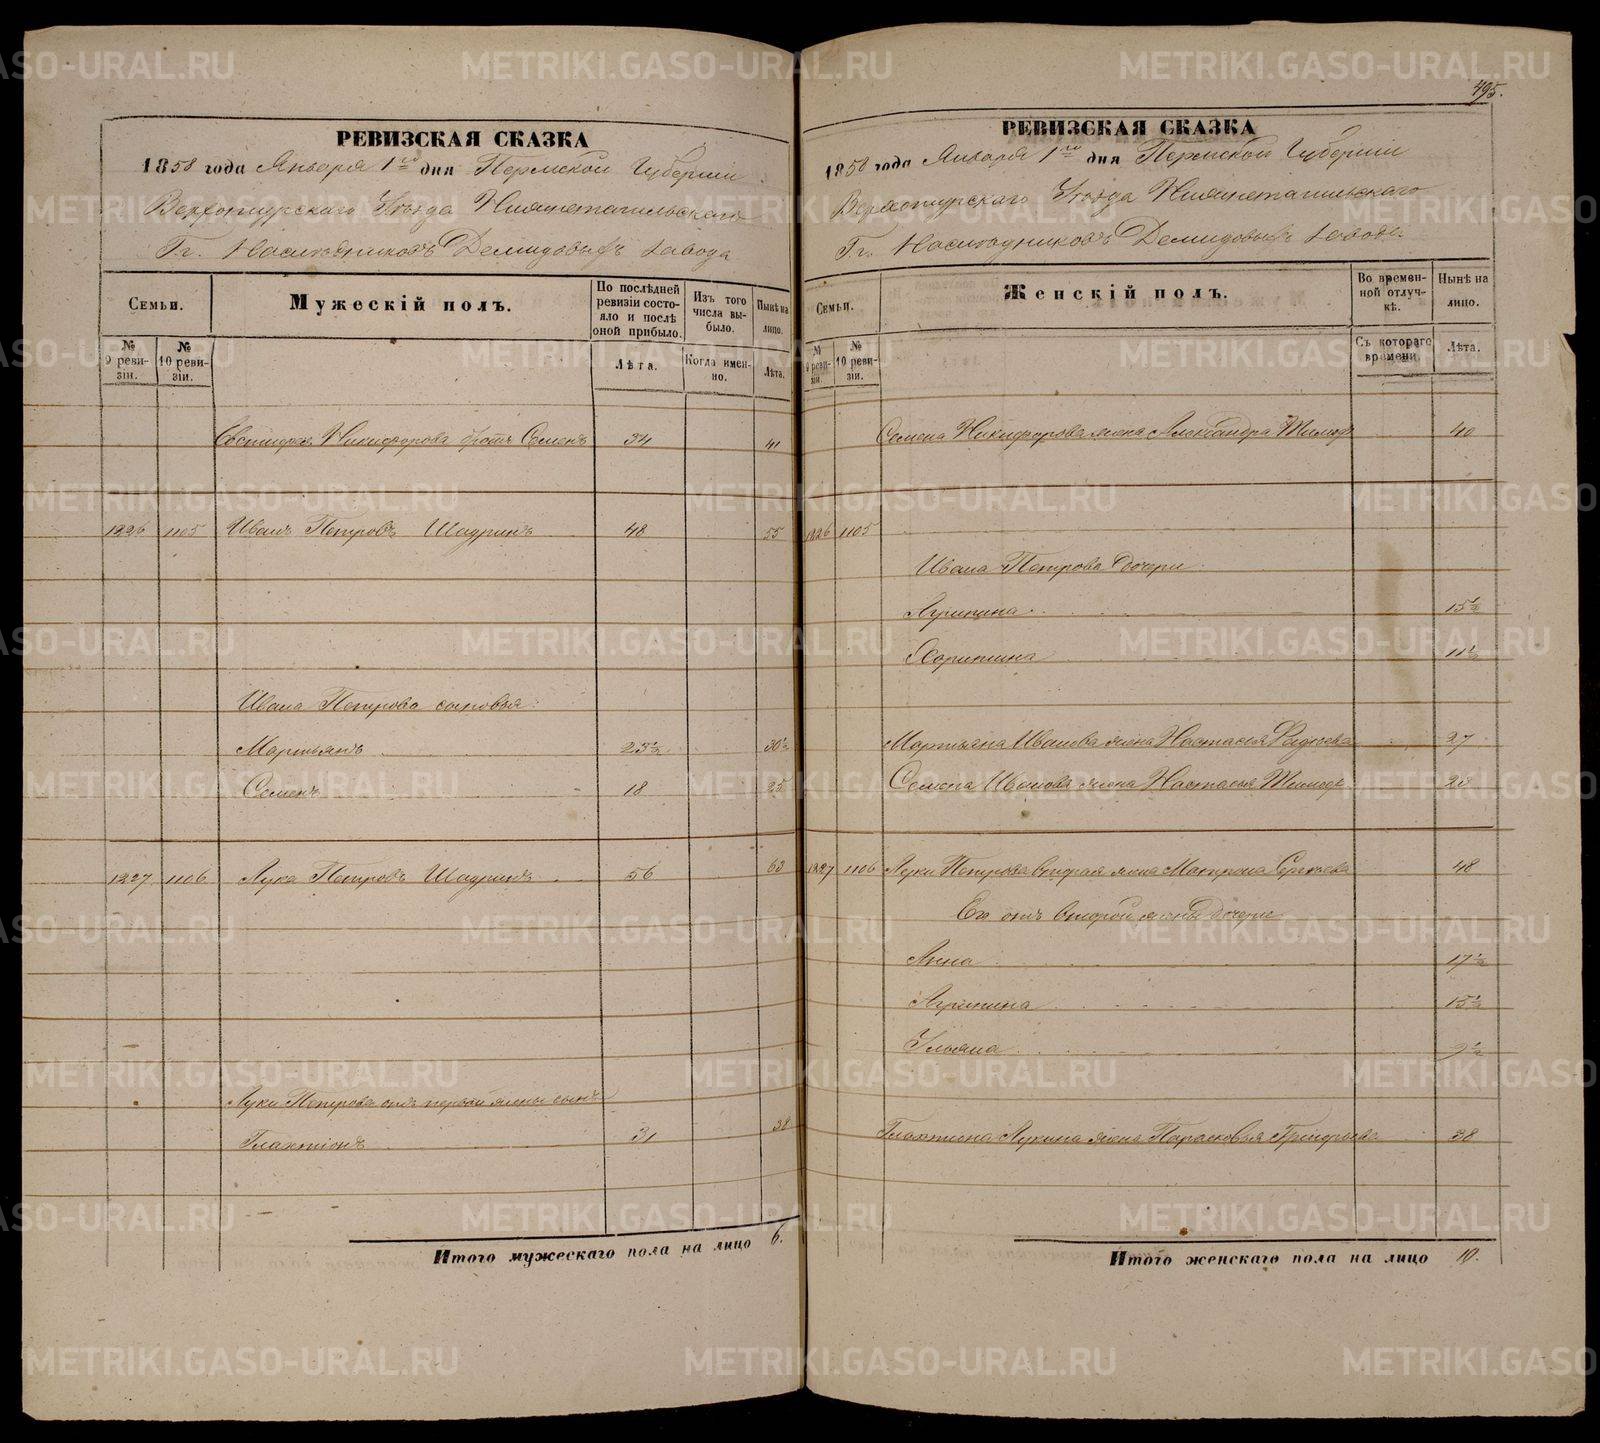 РЕВИЗСКАЯ СКАЗКА
1858 года Января 1го дня Пермской Губернии
Верхотурскаго Уѣзда Нижнетагильскаго
Гг. Наслѣдниковъ Демидовыхъ завода
Семьи.
Мужескій полъ.
По послѣдней ревизіи состояло и послѣ оной прибыло.
Изъ того числа выбыло.
Нынѣ на лицо.
№ 9 ревизіи.
№ 10 ревизіи.
Лѣта.
Когда именно.
Лѣта.
Никифорова братъ Семенъ 34 41
1226 1105 Иванъ Петровъ Шадринъ 48 55
Ивана Петрова сыновья:
Мартьянъ 23½ 30½
Семенъ 18 25
1227 1106 Лука Петровъ Шадринъ 56 63
Луки Петрова отъ первой жены сынъ
Галактіонъ 31 38
Итого мужескаго пола на лицо 6.
495.
РЕВИЗСКАЯ СКАЗКА
1858 года Января 1го дня Пермской Губерніи
Верхотурскаго Уѣзда Нижнетагильскаго
Гг. Наслѣдниковъ Демидовыхъ завода
Семьи.
Женскій полъ.
Во временной отлучкѣ.
Нынѣ на лицо.
№ 9 ревизіи.
№ 10 ревизіи.
Съ котораго времени.
Лѣта.
Семена Никифорова жена Александра Тимоф 40
1226 1105
Ивана Петрова дочери
Агрипина 15½
Харитина 11½
Мартьяна Иванова жена Настасья 27
Семена Иванова жена Настасья Тимоф 28
1227 1106 Луки Петрова вторая жена Матрена Сергѣева 48
Его отъ второй жены дочери
Анна 17½
Агрипина 15½
Ульяна 9½
Галактиона Лукина жена Парасковья Григорьева 38
Итого женскаго пола на лицо 10.
METRIKI.GASO-URAL.RU